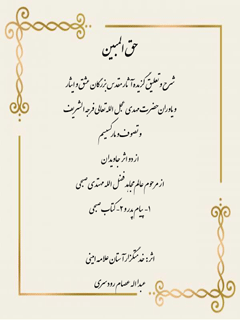 حق المبین
شرح و تعلیق گزیده آثار مقدس بزرگان عشق و ایثار
و یاوران حضرت مهدی عجل الله تعالی فرجه الشریف
و تصوف و مارکسیسم
از دو اثر جاویدان
از مرحوم عالم مجاهد فضل الله مهتدی صبحی
۱- پیام پدر و ۲- کتاب صبحی
اثر: خدمتگزار آستان علامه امینی
عبداله عصام رودسری